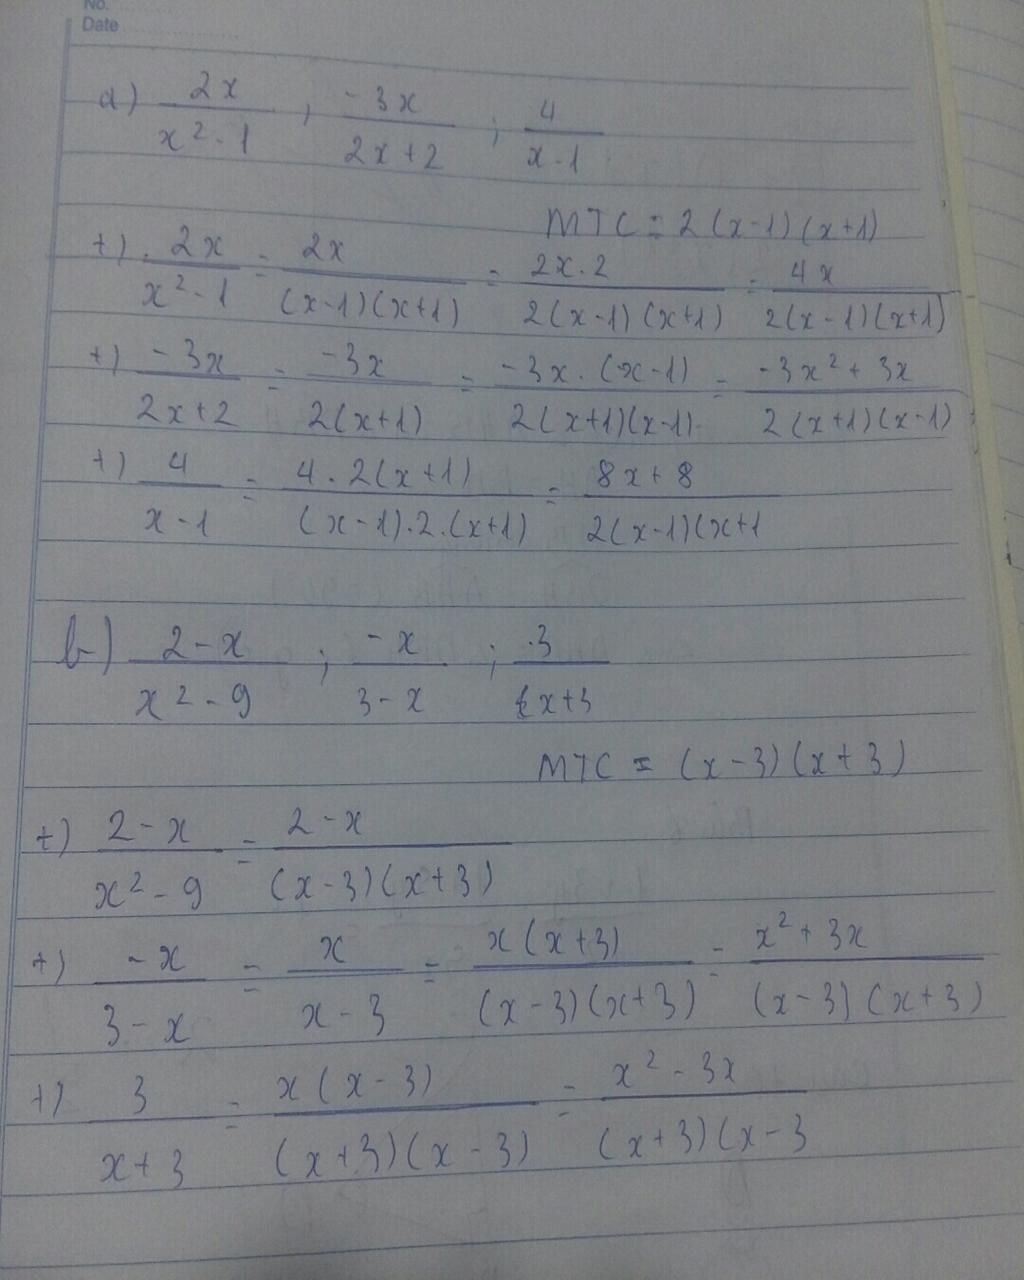 No.
Date
a) 2x/(x²-1) ; -3x/(2x+2) ; 4/(x-1)
MTC = 2(x-1)(x+1)
+) 2x/(x²-1) = 2x/((x-1)(x+1)) = 2x.2/(2(x-1)(x+1)) = 4x/(2(x-1)(x+1))
+) -3x/(2x+2) = -3x/(2(x+1)) = -3x.(x-1)/(2(x+1)(x-1)) = -3x²+3x/(2(x+1)(x-1))
+) 4/(x-1) = 4.2(x+1)/((x-1).2.(x+1)) = 8x+8/(2(x-1)(x+1
b) 2-x/(x²-9) ; -x/(3-x) ; 3/(x+3)
MTC = (x-3)(x+3)
+) 2-x/(x²-9) = 2-x/((x-3)(x+3))
+) -x/(3-x) = x/(x-3) = x(x+3)/((x-3)(x+3)) = x²+3x/((x-3)(x+3))
+) 3/(x+3) = x(x-3)/((x+3)(x-3)) = x²-3x/((x+3)(x-3